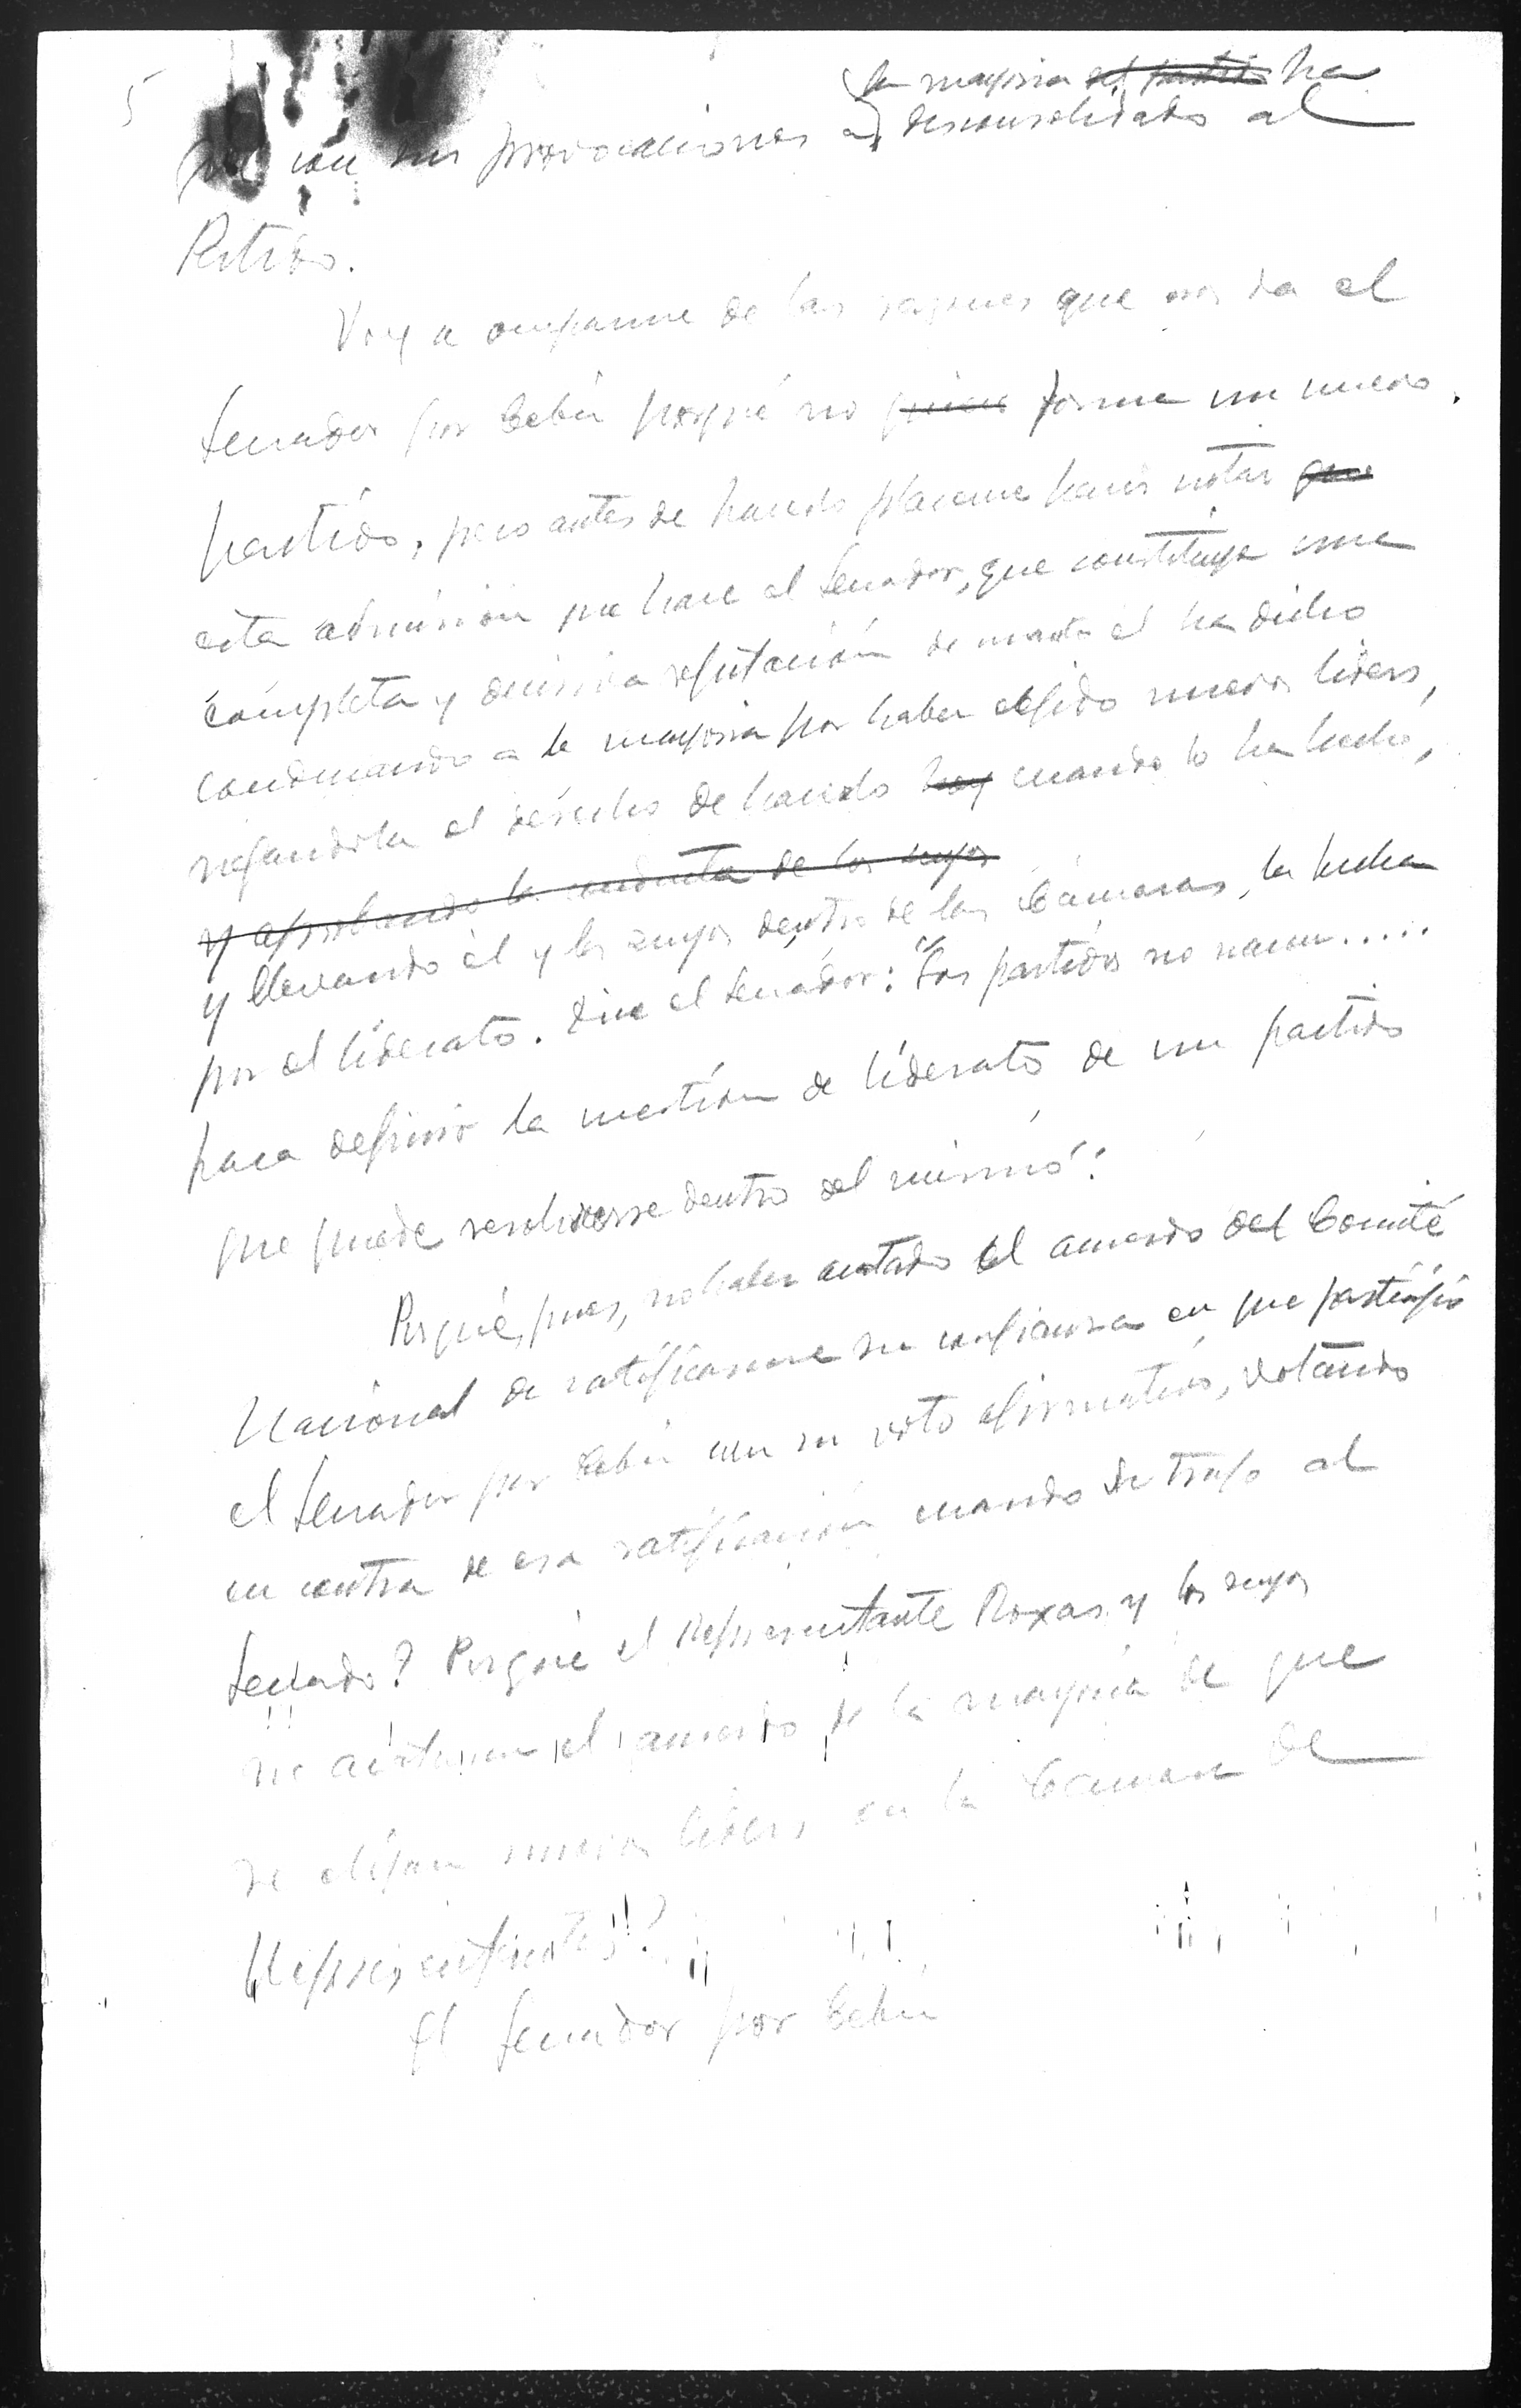 5
la mayoria del partido ha
que con sus provocaciones a desconsolidado al
Partido.
Voy a ocuparme de las razones que nos da el
Senador por Cebú porqué no quiere forma un nuevo
partido, pero antes de hacerlo placeme hacer notar que
esta admisión que hace el Senador, que constituye una
completa y decisiva refutación de cuanto él ha dicho
condenando a la mayoria por haber elejido nuevos liders,
negandola el derecho de hacerlo hoy cuando lo ha hecho,
y aprobando la conducta de los suyos
y llevando él y los suyos dentro de las Cámaras, la lucha
por el liderato. Dice el Senador: "Los partidos no nacen.....
para definir la cuestión de liderato de un partido
que puede resolverse dentro del mismo".
Porqué, pues, no haber acatado el acuerdo del Comité
Nacional de ratificarme su confianza en que participó
el Senador por Cebú con su voto afirmativo, votando
en contra de esa ratificación cuando se trajo al
Senado? Porqué el Representante Roxas y los suyos
no acataron el acuerdo de la mayoria de que
se elijan nuevos liders en la Camara de
Representantes?
El Senador por Cebú